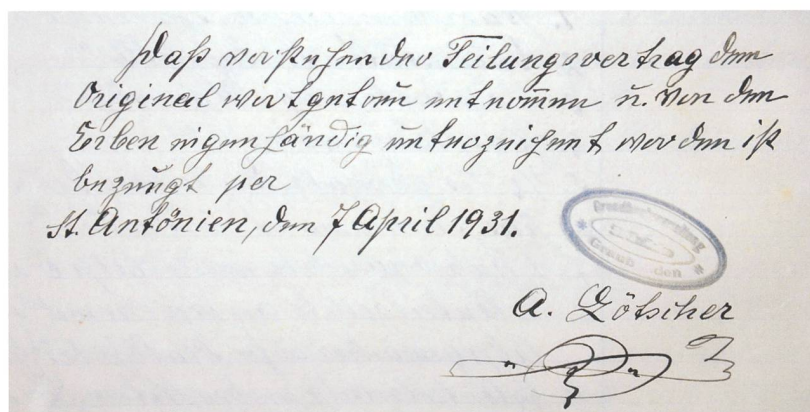 Daß vorstehender Teilungsvertrag dem
Original wortgetreu entnommen u. von den
Erben eigenhändig unterzeichnet worden ist
bezeugt per
St. Antönien, den 7 April 1931.
Graubünden
A. Lötscher